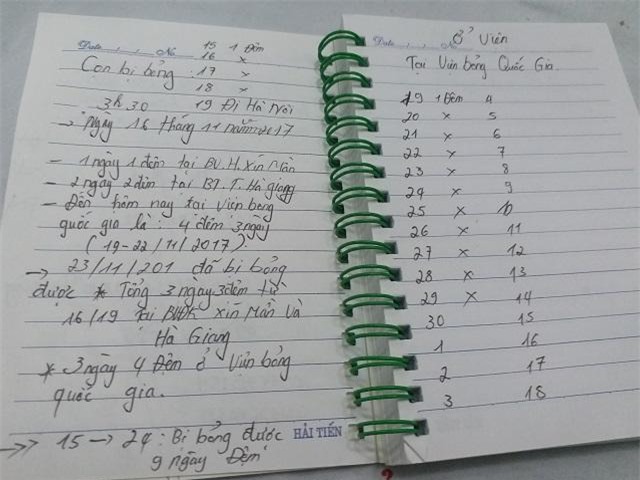 Date , , No 15 1 Đêm
16 x
Con bị bỏng 17 x
18 x
3h 30 19 Đi Hà Nội
→ Ngày 16 tháng 11 năm 2017
- 1 ngày 1 đêm tại BV.H.Xín Mần
- 2 ngày 2 đêm tại BV.T.Hà giang
- Đến hôm nay tại viện bỏng
quốc gia là: 4 đêm 3 ngày
(19-22/11/2017)
→ 23/11/201 đã bị bỏng
được * Tổng 3 ngày 3 đêm từ
16/19 tại BVĐK Xín Mần Và
Hà Giang
* 3 ngày 4 Đêm ở Viện bỏng
quốc gia.
→>> 15 → 24: Bị bỏng được
9 ngày Đêm
HẢI TIẾN
Date , , No Ở Viện
Tại Viện bỏng Quốc Gia.
19 1 Đêm 4
20 x 5
21 x 6
22 x 7
23 x 8
24 x 9
25 x 10
26 x 11
27 x 12
28 x 13
29 x 14
30 15
1 16
2 17
3 18